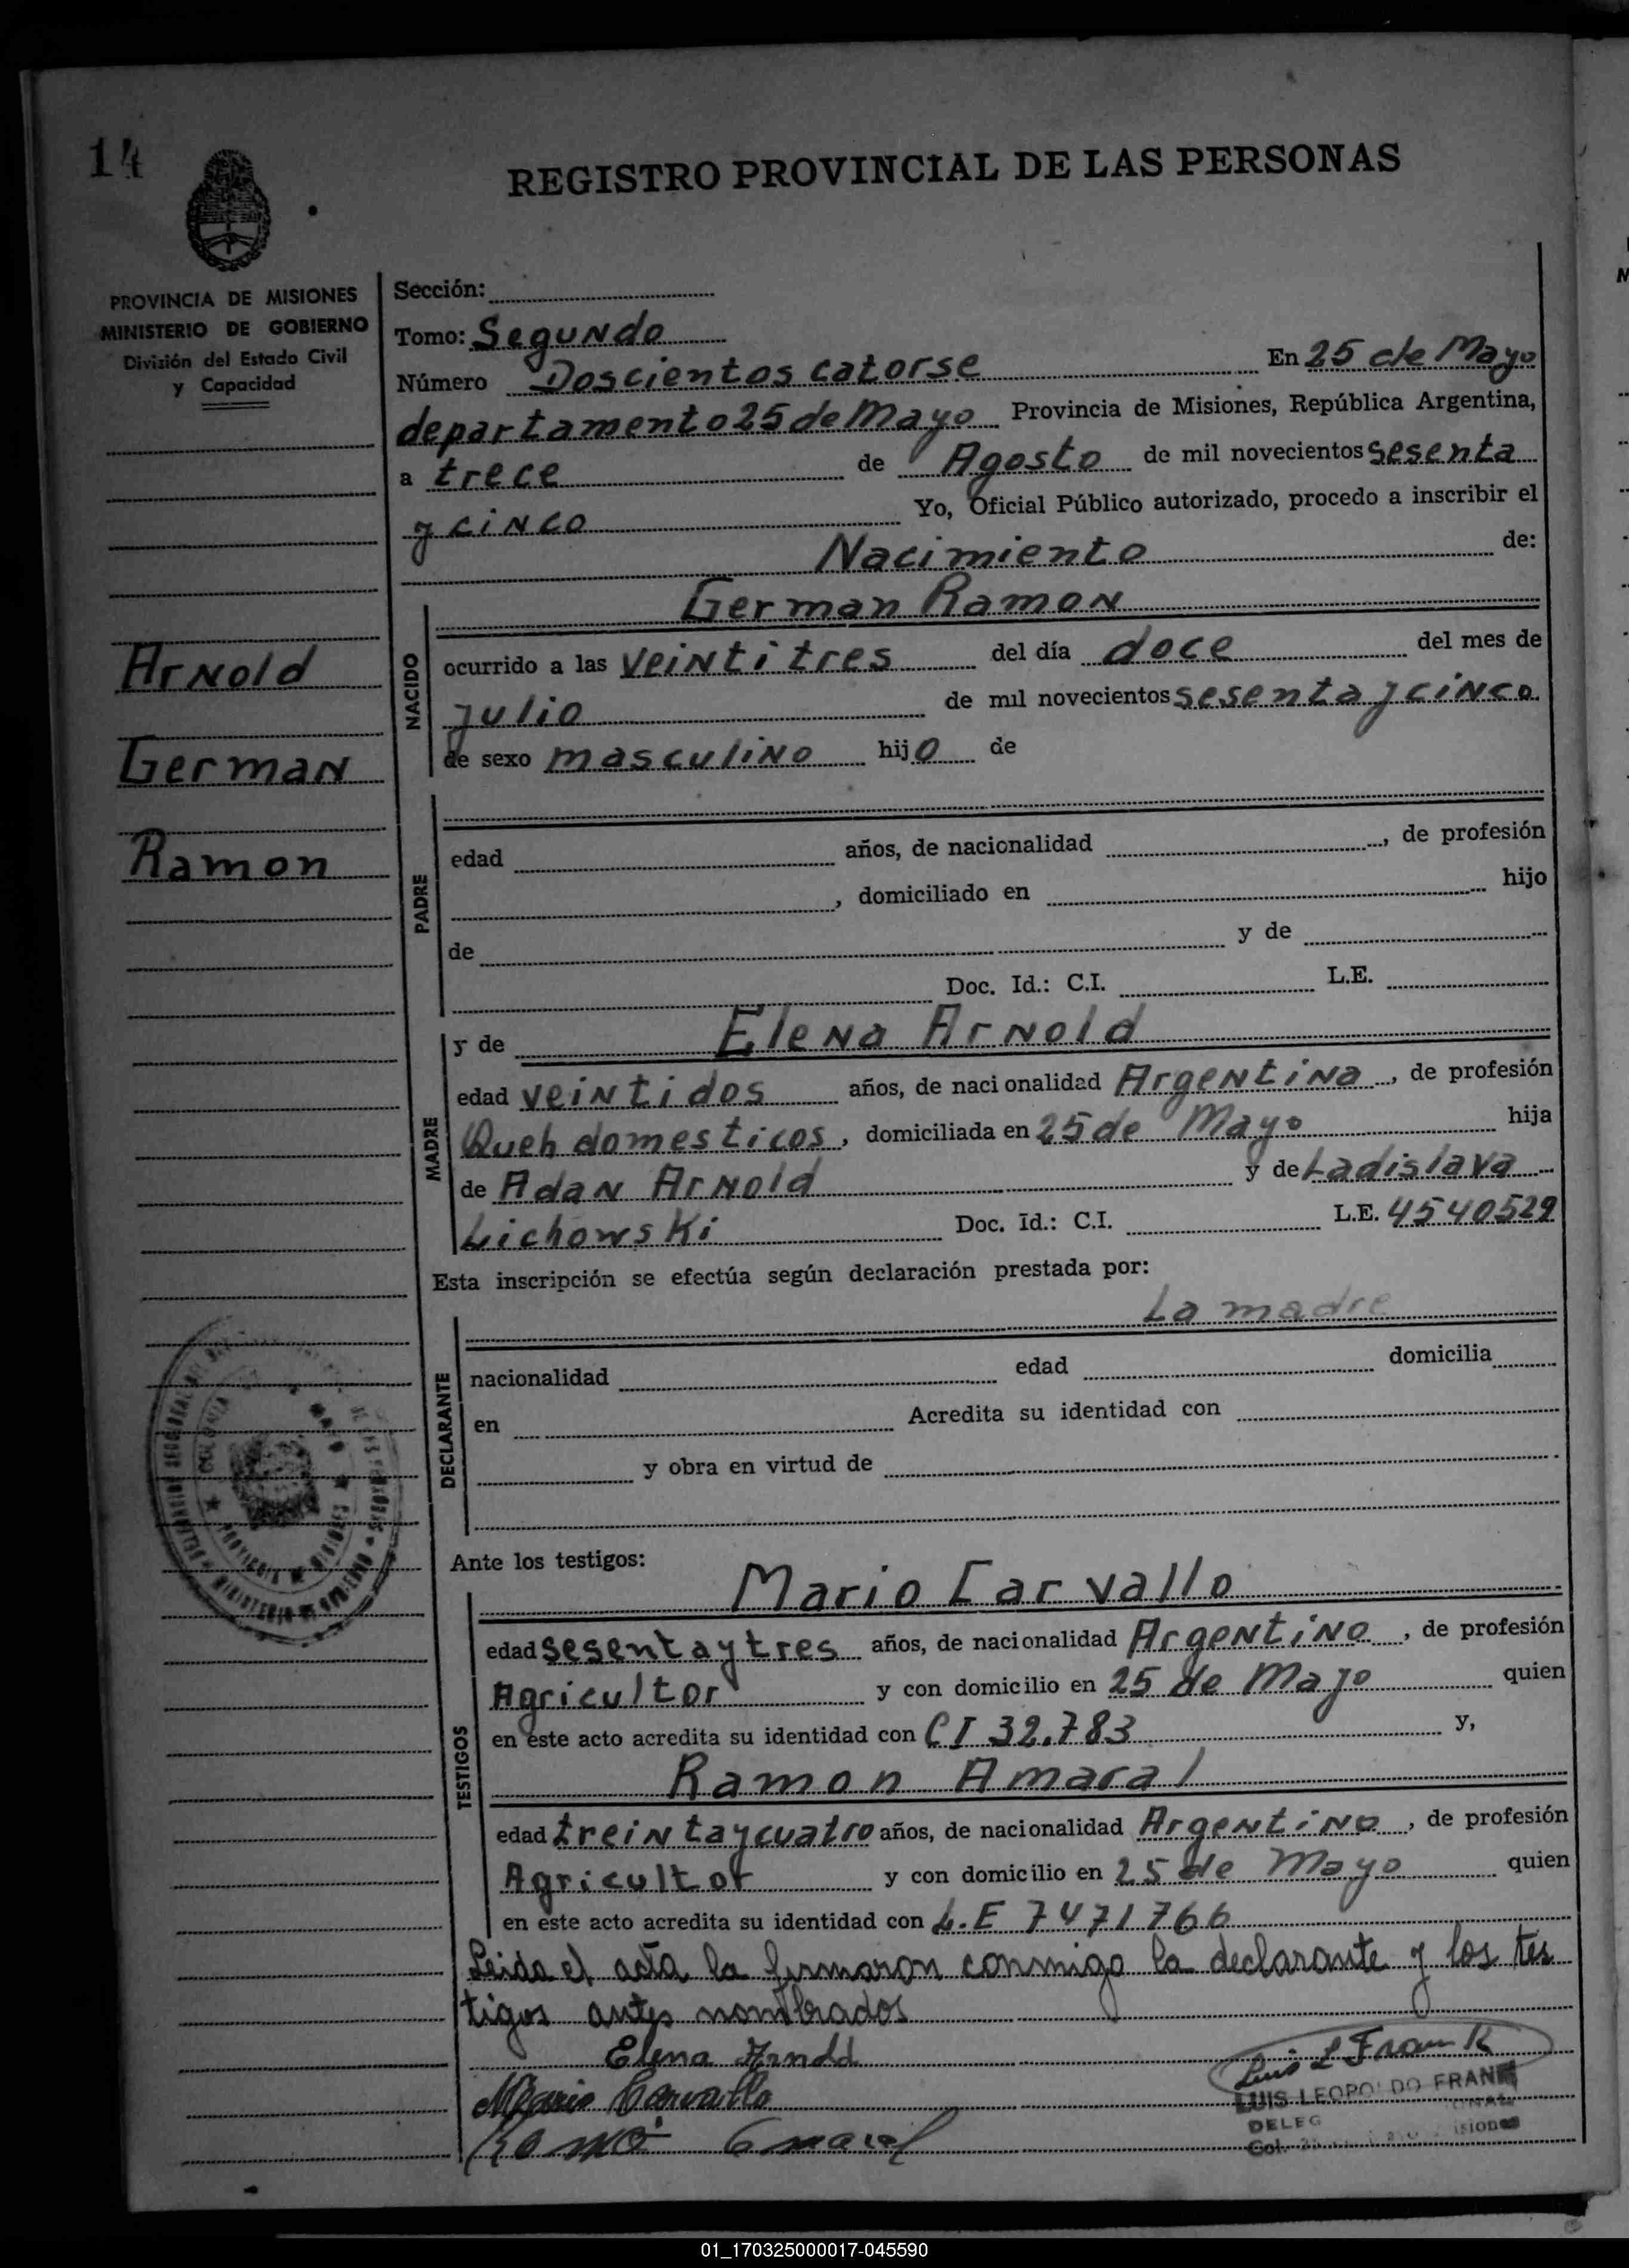 14
REGISTRO PROVINCIAL DE LAS PERSONAS
PROVINCIA DE MISIONES
MINISTERIO DE GOBIERNO
División del Estado Civil
y Capacidad
Arnold
German
Ramon
Sección:
Tomo: Segundo
Número Doscientos catorse En 25 de Mayo
departamento 25 de Mayo Provincia de Misiones, República Argentina,
a trece de Agosto de mil novecientos sesenta
y cinco Yo, Oficial Público autorizado, procedo a inscribir el
Nacimiento de:
NACIDO
German Ramon
ocurrido a las veintitres del día doce del mes de
julio de mil novecientos sesenta y cinco
de sexo masculino hijo de
PADRE
edad años, de nacionalidad , de profesión
, domiciliado en hijo
de y de
Doc. Id.: C.I. L.E.
MADRE
y de Elena Arnold
edad veintidos años, de nacionalidad Argentina , de profesión
Queh domesticos , domiciliada en 25 de Mayo hija
de Adan Arnold y de Ladislava
Lichowski Doc. Id.: C.I. L.E. 4540529
Esta inscripción se efectúa según declaración prestada por:
La madre
DECLARANTE
nacionalidad edad domicilia
en Acredita su identidad con
y obra en virtud de
Ante los testigos:
TESTIGOS
Mario Carvallo
edad sesenta y tres años, de nacionalidad Argentino , de profesión
Agricultor y con domicilio en 25 de Mayo quien
en este acto acredita su identidad con CI 32.783 y,
Ramon Amaral
edad treinta y cuatro años, de nacionalidad Argentino , de profesión
Agricultor y con domicilio en 25 de Mayo quien
en este acto acredita su identidad con L.E 7471766
Leida el acta la firmaron conmigo la declarante y los tes
tigos antes nombrados
Elena Arnold
Mario Carvallo
Luis L Frank
LUIS LEOPOLDO FRANK
DELEG
Col.
01_170325000017-045590